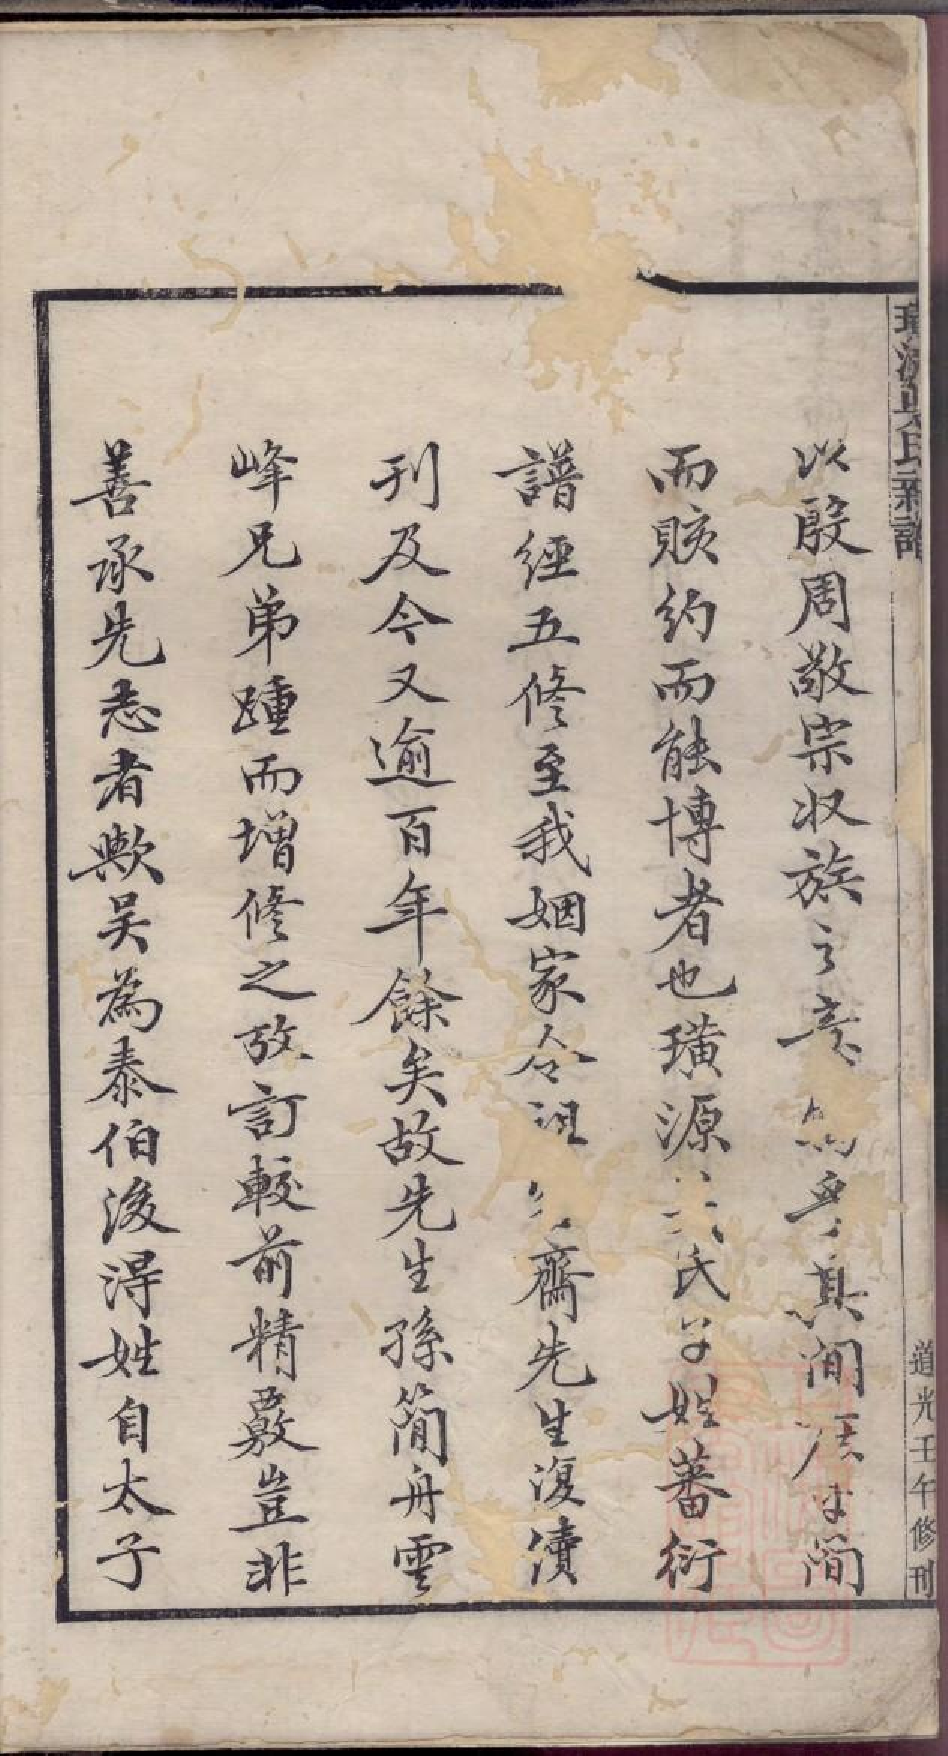 以殷周敬宗收族之意 寓 其間 簡
而賅約而能博者也璜源 氏子姓蕃衍
譜經五修至我姻家令祖 齋先生復續
刊及今又逾百年餘矣故先生孫簡舟雲
峰兄弟踵而增修之攷訂較前精覈豈非
善承先志者歟吴為泰伯後得姓自太子
璜源吳氏新譜
道光壬午修刊